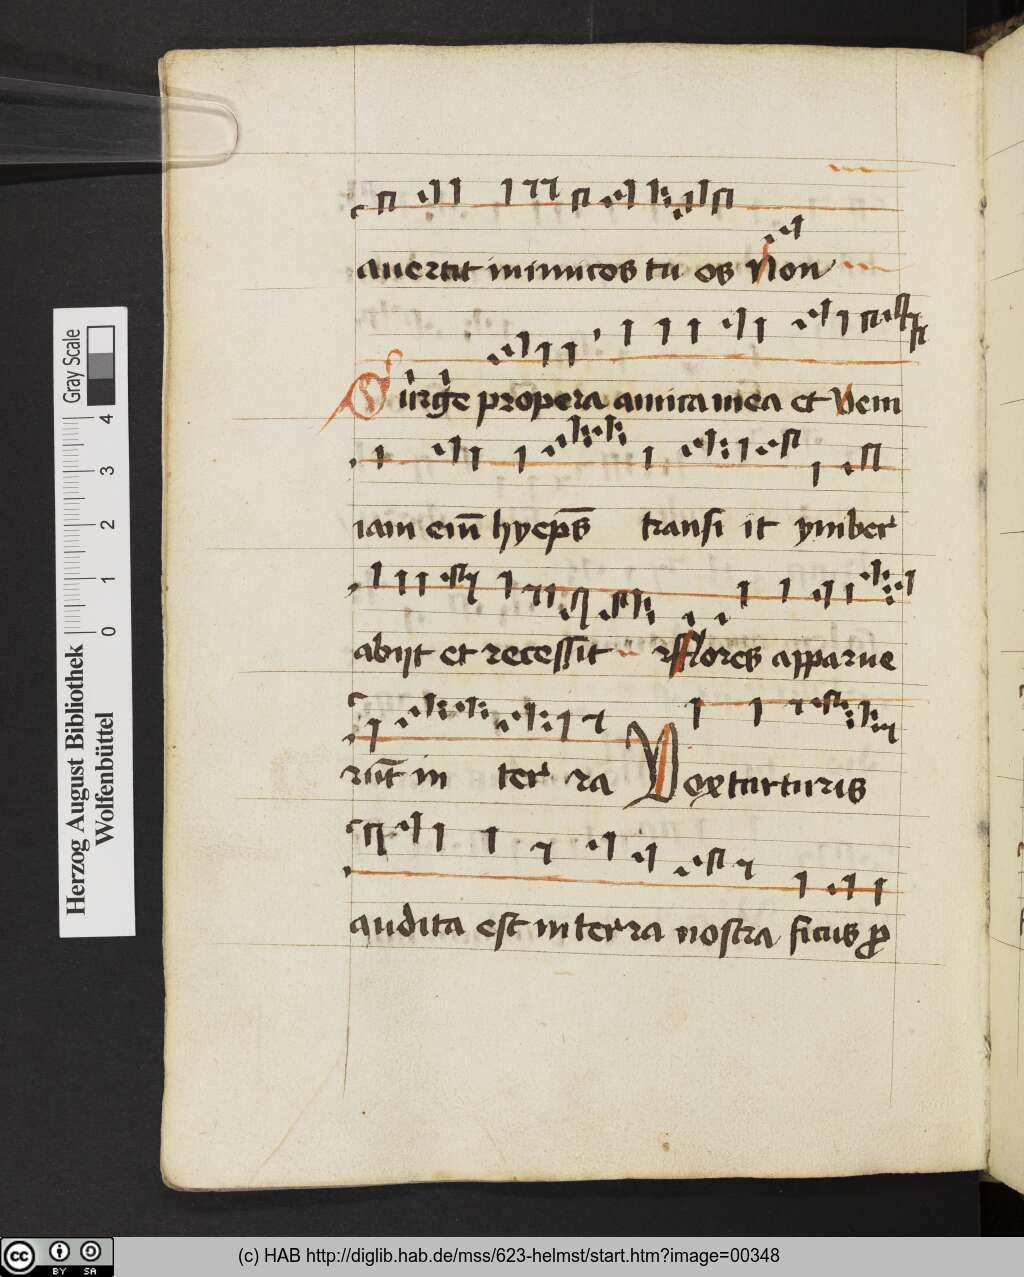 auertit inimicos tu os Non
Surge propera amica mea et Veni
iam em̄ hyeps̄ transi it ymber
abijt et recessit Flores apparue
rūt in ter ra Vox turturis
audita est in terra nostra ficus ꝓ
Herzog August Bibliothek
Wolfenbüttel
0 1 2 3 4
Gray Scale
cc BY SA
(c) HAB http://diglib.hab.de/mss/623-helmst/start.htm?image=00348